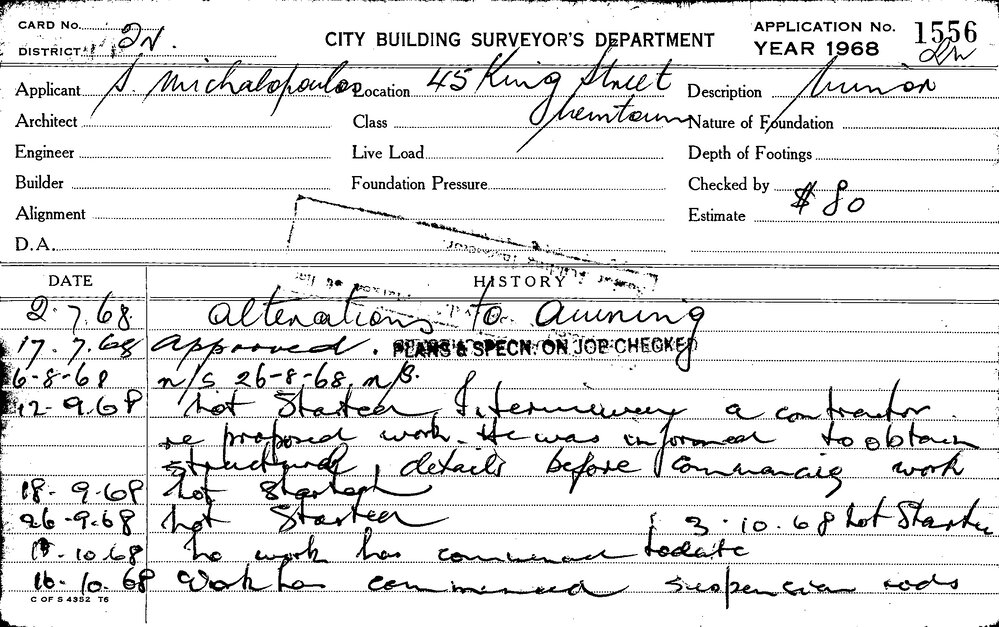 CARD No.
DISTRICT 2N.
CITY BUILDING SURVEYOR'S DEPARTMENT
APPLICATION No. 1556
YEAR 1968 2N
Applicant S. Michalopoulos Location 45 King Street Description
Newtown
Architect Class Nature of Foundation
Engineer Live Load Depth of Footings
Builder Foundation Pressure Checked by
Alignment Estimate $80
D.A.
DATE HISTORY
2.7.68. Alterations to awning
17.7.68 Approved. PLANS & SPECN. ON JOB CHECKED
6-8-68 n/s 26-8-68 n/s.
12-9.68 Not Started Interviewed a contractor
re proposed work. He was informed to obtain
structural details before commencing work
18-9-68 Not Started
26-9-68 Not Started 3.10.68 Not Started
.10.68 No work has commenced todate
16.10.68 Work has commenced suspension rods
C OF S 4352 T6